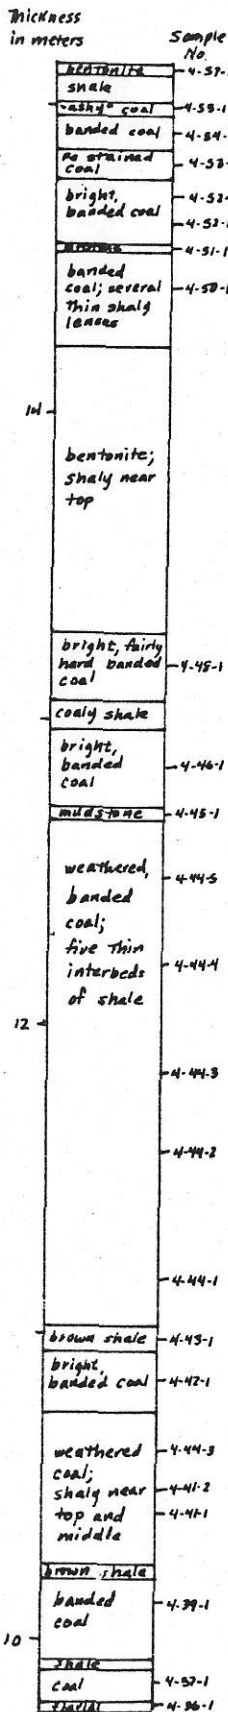 Thickness
in meters
Sample
No.
bentonite
shale
"ashy" coal
4-55-1
banded coal
Fe stained
coal
bright,
banded coal
4-52-1
4-51-1
banded
coal; several
thin shaly
lenses
4-50-1
14
bentonite;
shaly near
top
bright, fairly
hard banded
coal
4-48-1
coaly shale
bright,
banded
coal
4-46-1
mudstone
4-45-1
weathered,
banded
coal;
five thin
interbeds
of shale
4-44-5
4-44-4
12
4-44-3
4-44-2
4-44-1
brown shale
4-43-1
bright,
banded coal
4-42-1
weathered
coal;
shaly near
top and
middle
4-44-3
4-41-2
4-41-1
brown shale
banded
coal
4-39-1
10
shale
coal
4-37-1
4-36-1